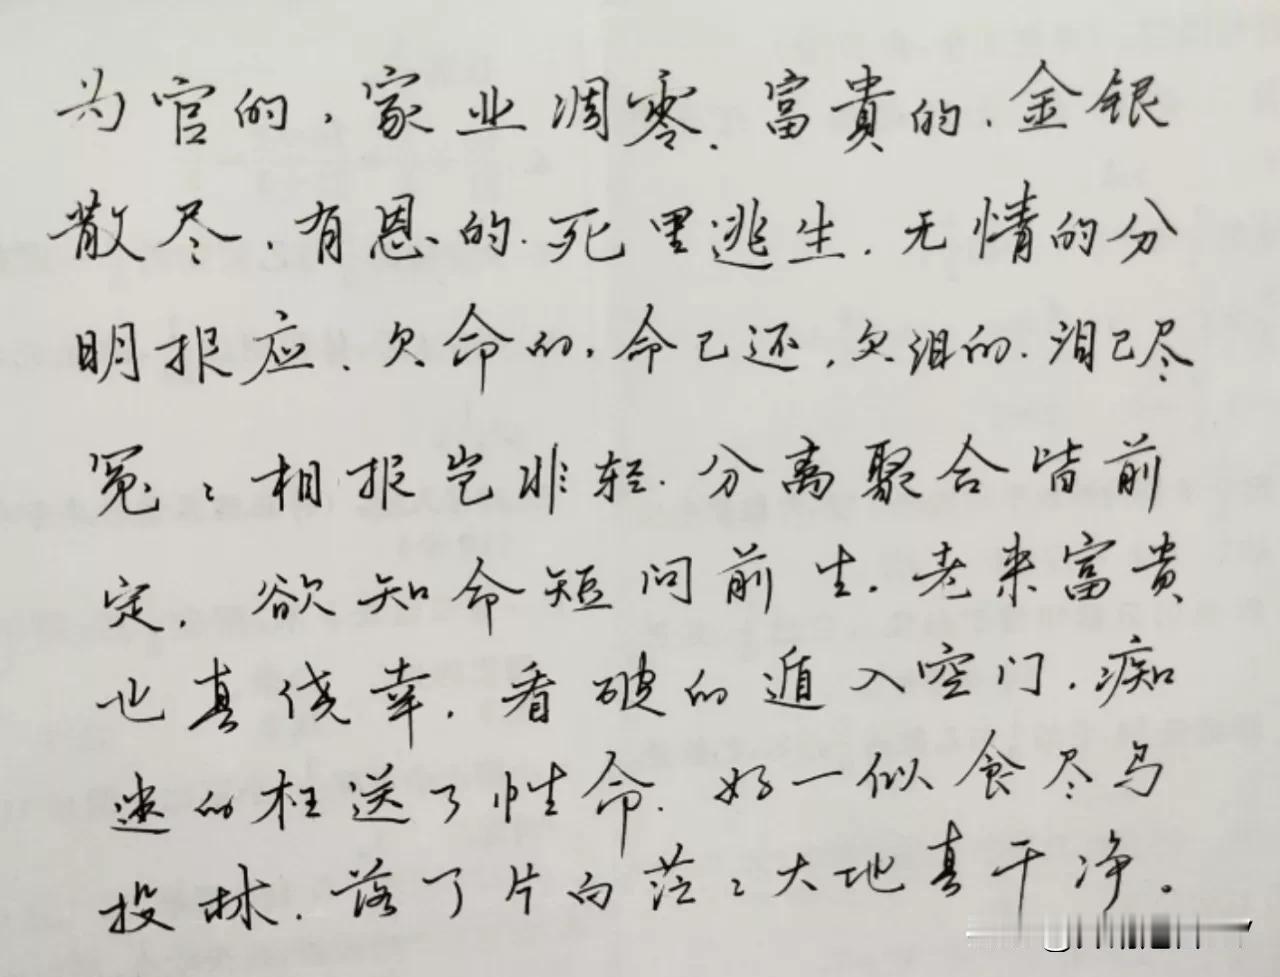 为官的，家业凋零.富貴的.金银
散尽.有恩的.死里逃生.无情的分
明报应.欠命的.命已还.欠泪的.泪已尽
冤〻相报岂非轻.分离聚合皆前
定.欲知命短问前生.老来富贵
也真侥幸.看破的遁入空门.痴
迷的枉送了性命.好一似食尽鸟
投林.落了片白茫〻大地真干净。